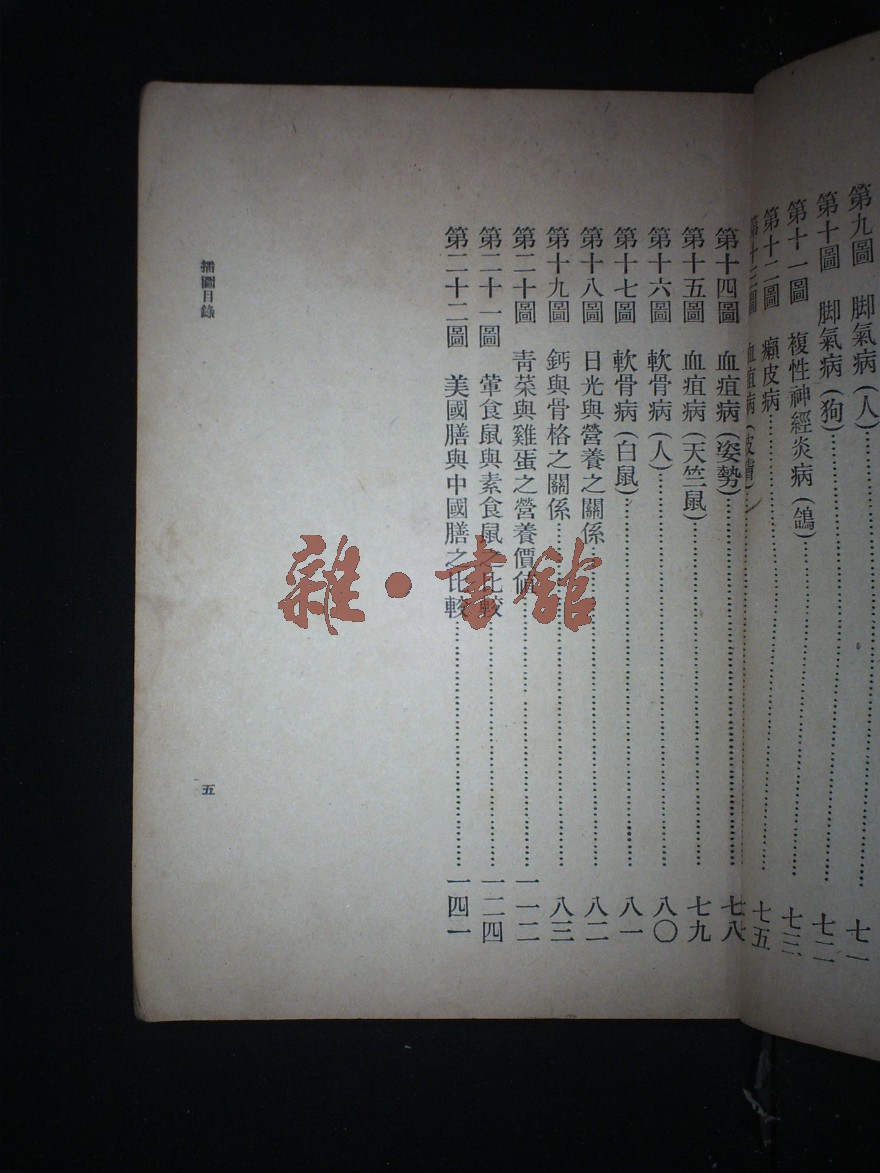 第九圖　脚氣病(人)……………………七一
第十圖　脚氣病(狗)……………………七二
第十一圖　複性神經炎病(鴿)……………………七三
第十二圖　癩皮病……………………七五
第十三圖　血疽病(皮膚)……………………七
第十四圖　血疽病(姿勢)……………………七八
第十五圖　血疽病(天竺鼠)……………………七九
第十六圖　軟骨病(人)……………………八〇
第十七圖　軟骨病(白鼠)……………………八一
第十八圖　日光與營養之關係……………………八二
第十九圖　鈣與骨格之關係……………………八三
第二十圖　靑菜與雞蛋之營養價值……………………一一二
第二十一圖　葷食鼠與素食鼠之比較……………………一二四
第二十二圖　美國膳與中國膳之比較……………………一四一
插圖目錄
五
雜·書館